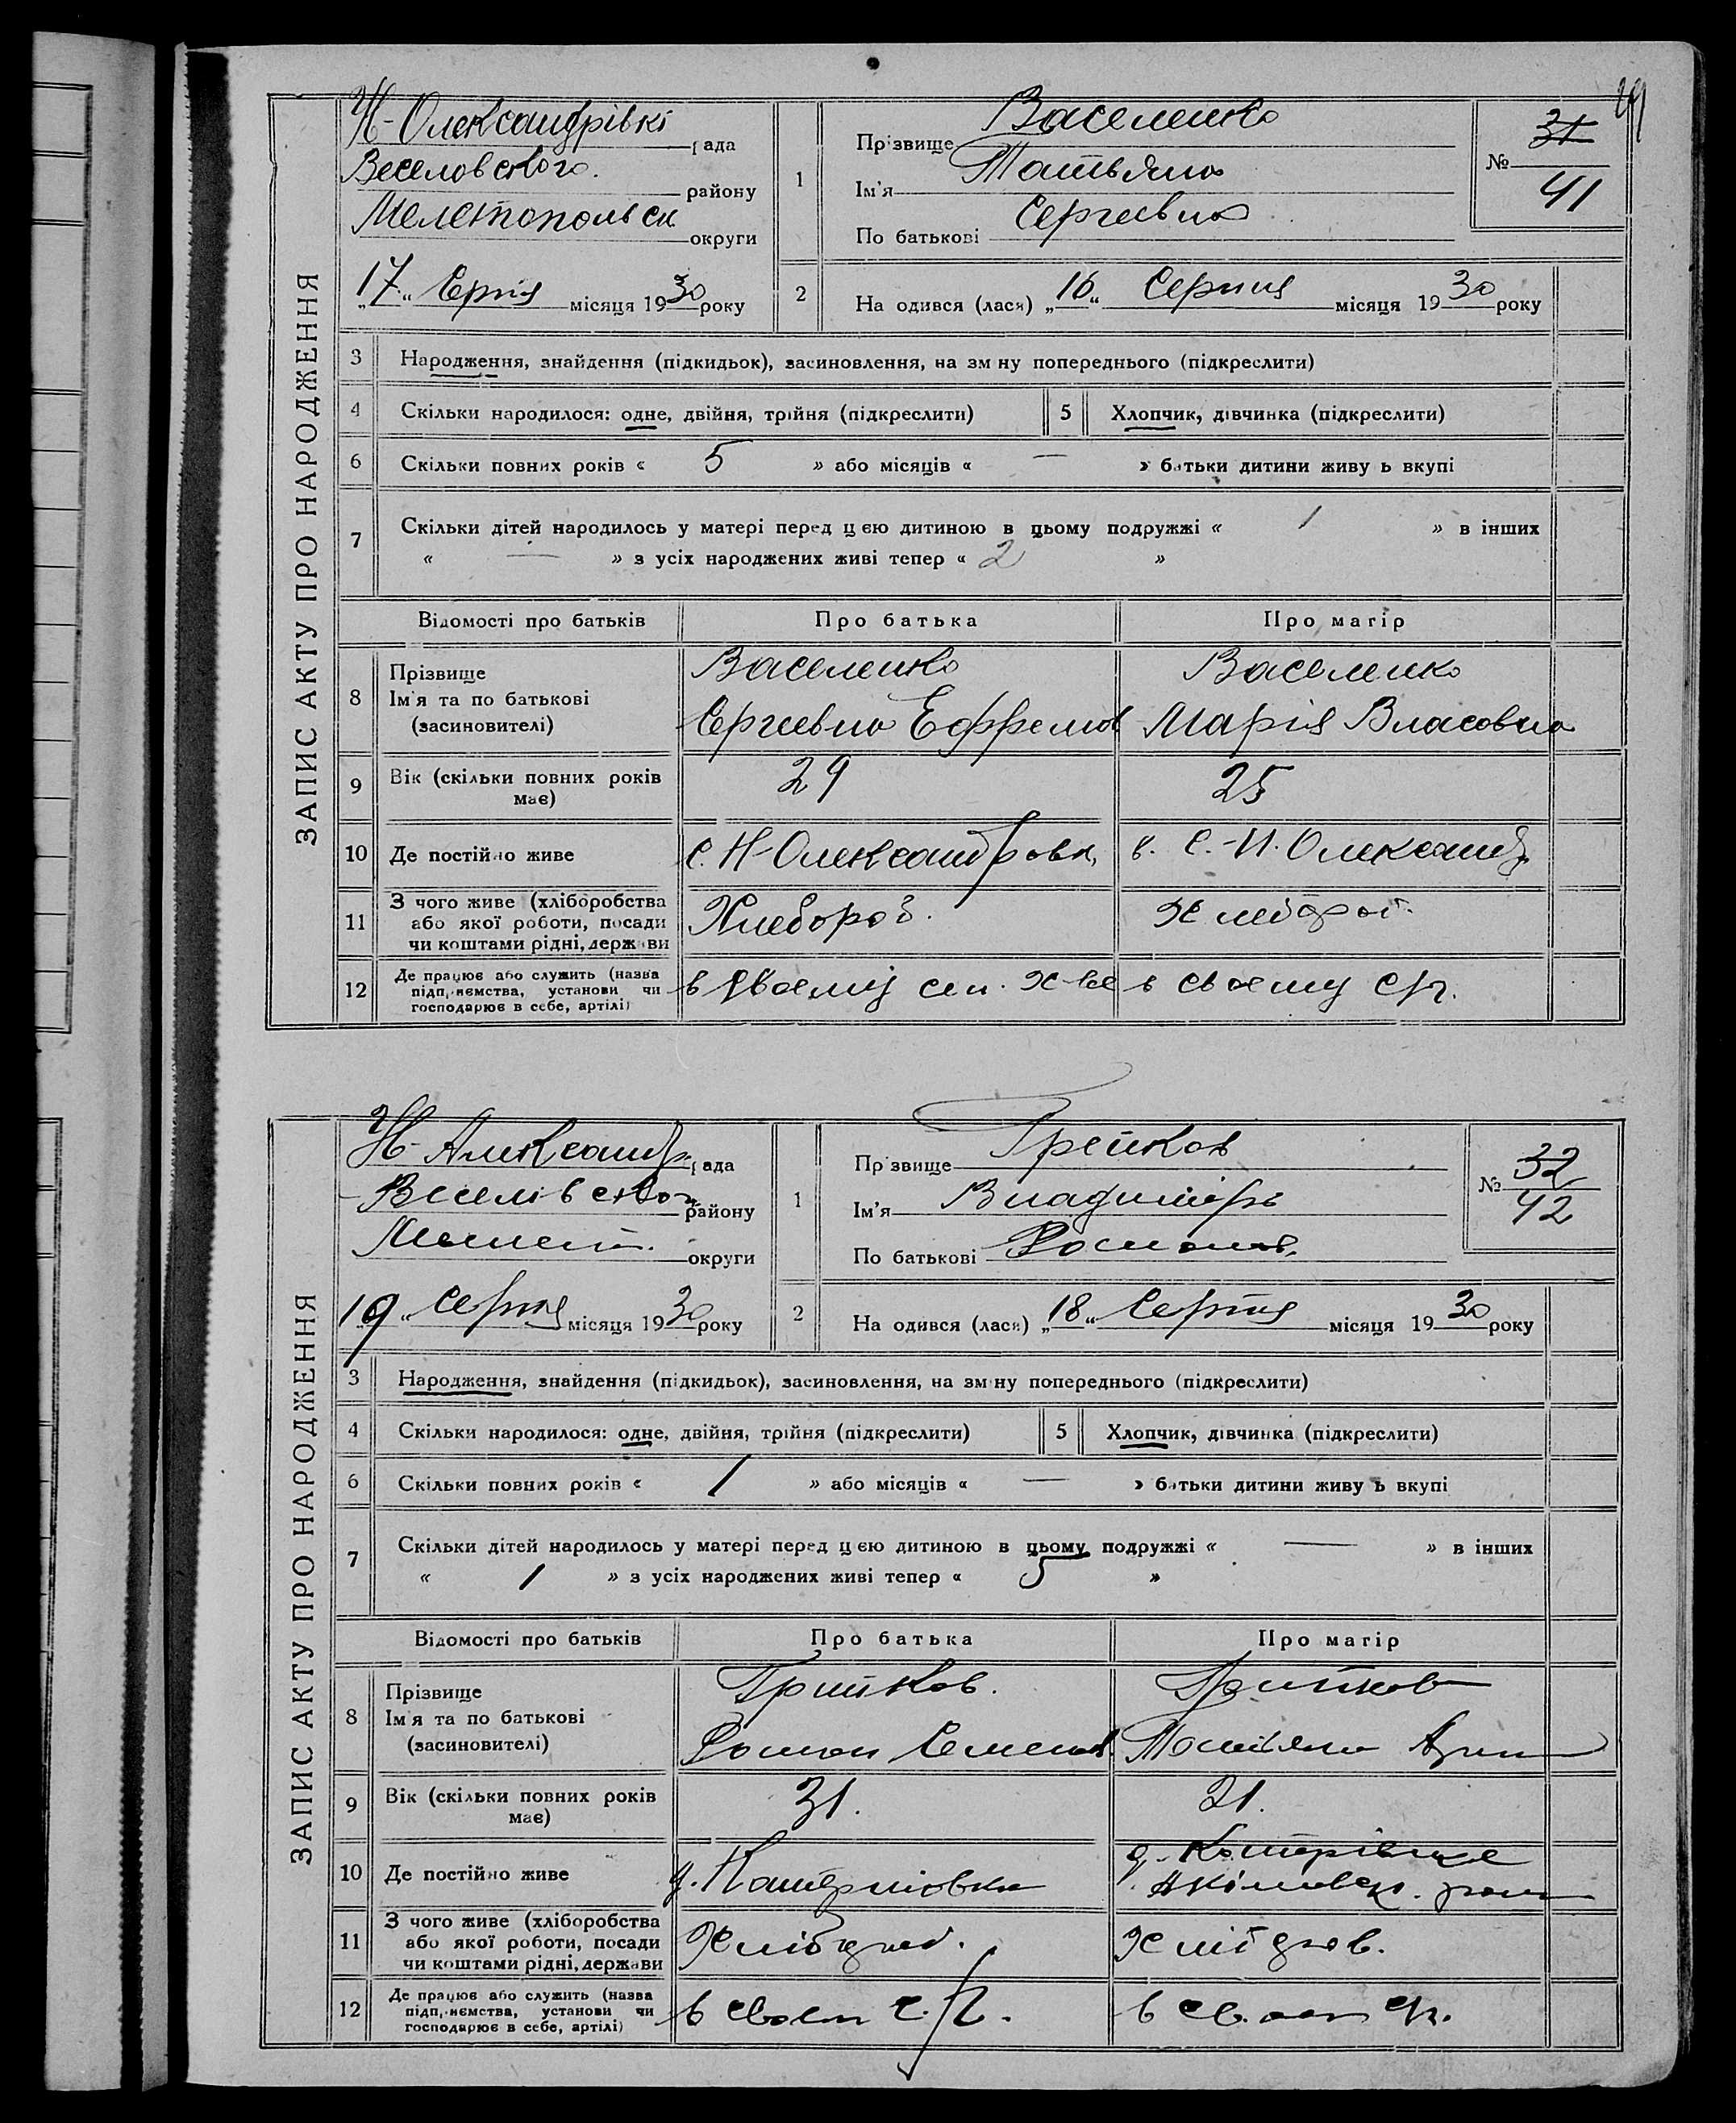 29
ЗАПИС АКТУ ПРО НАРОДЖЕННЯ
Н-Олександрівкі рада
Веселовского. району
Мелетопольск округи
„17“ Ерпня місяця 1930 року
1
Прізвище Васеленко
Ім'я Татьяна
По батькові Сергеевна
№ 31
41
2
На одився (лася) „16“ Серпня місяця 1930 року
3 Народження, знайдення (підкидьок), засиновлення, на зм ну попереднього (підкреслити)
4 Скільки народилося: одне, двійня, трійня (підкреслити)
5 Хлопчик, дівчинка (підкреслити)
6 Скільки повних років « 5 » або місяців « — » батьки дитини живу ь вкупі
7 Скільки дітей народилось у матері перед цією дитиною в цьому подружжі « 1 » в інших
« — » з усіх народжених живі тепер « 2 »
Відомості про батьків Про батька Про матір
8 Прізвище
Ім'я та по батькові
(засиновителі)
Васеленко
Сергеевна Еффемов
Васеленко
Марія Власовна
9 Вік (скільки повних років
має)
29
25
10 Де постійно живе
с. Н-Олександровк,
в. с.-Н. Олександ
11 З чого живе (хліборобства
або якої роботи, посади
чи коштами рідні, держави
Хлебороб.
12 Де працює або служить (назва
підприємства, установи чи
господарює в себе, артілі)
в своєму сел. х-ве
в своєму с/г.
ЗАПИС АКТУ ПРО НАРОДЖЕННЯ
Н-Александр рада
району
округи
„19“ серпня місяця 1930 року
1
Прізвище Грейков
Ім'я Владимір
По батькові Роман
№ 32
42
2
На одився (лася) „18“ Серпня місяця 1930 року
3 Народження, знайдення (підкидьок), засиновлення, на зм ну попереднього (підкреслити)
4 Скільки народилося: одне, двійня, трійня (підкреслити)
5 Хлопчик, дівчинка (підкреслити)
6 Скільки повних років « 1 » або місяців « — » батьки дитини живу ь вкупі
7 Скільки дітей народилось у матері перед цією дитиною в цьому подружжі « — » в інших
« 1 » з усіх народжених живі тепер « 5 »
Відомості про батьків Про батька Про матір
8 Прізвище
Ім'я та по батькові
(засиновителі)
Роман Семенов
Татьяна
9 Вік (скільки повних років
має)
31.
21.
10 Де постійно живе
11 З чого живе (хліборобства
або якої роботи, посади
чи коштами рідні, держави
12 Де працює або служить (назва
підприємства, установи чи
господарює в себе, артілі)
в своєм с./г.
в с/г.